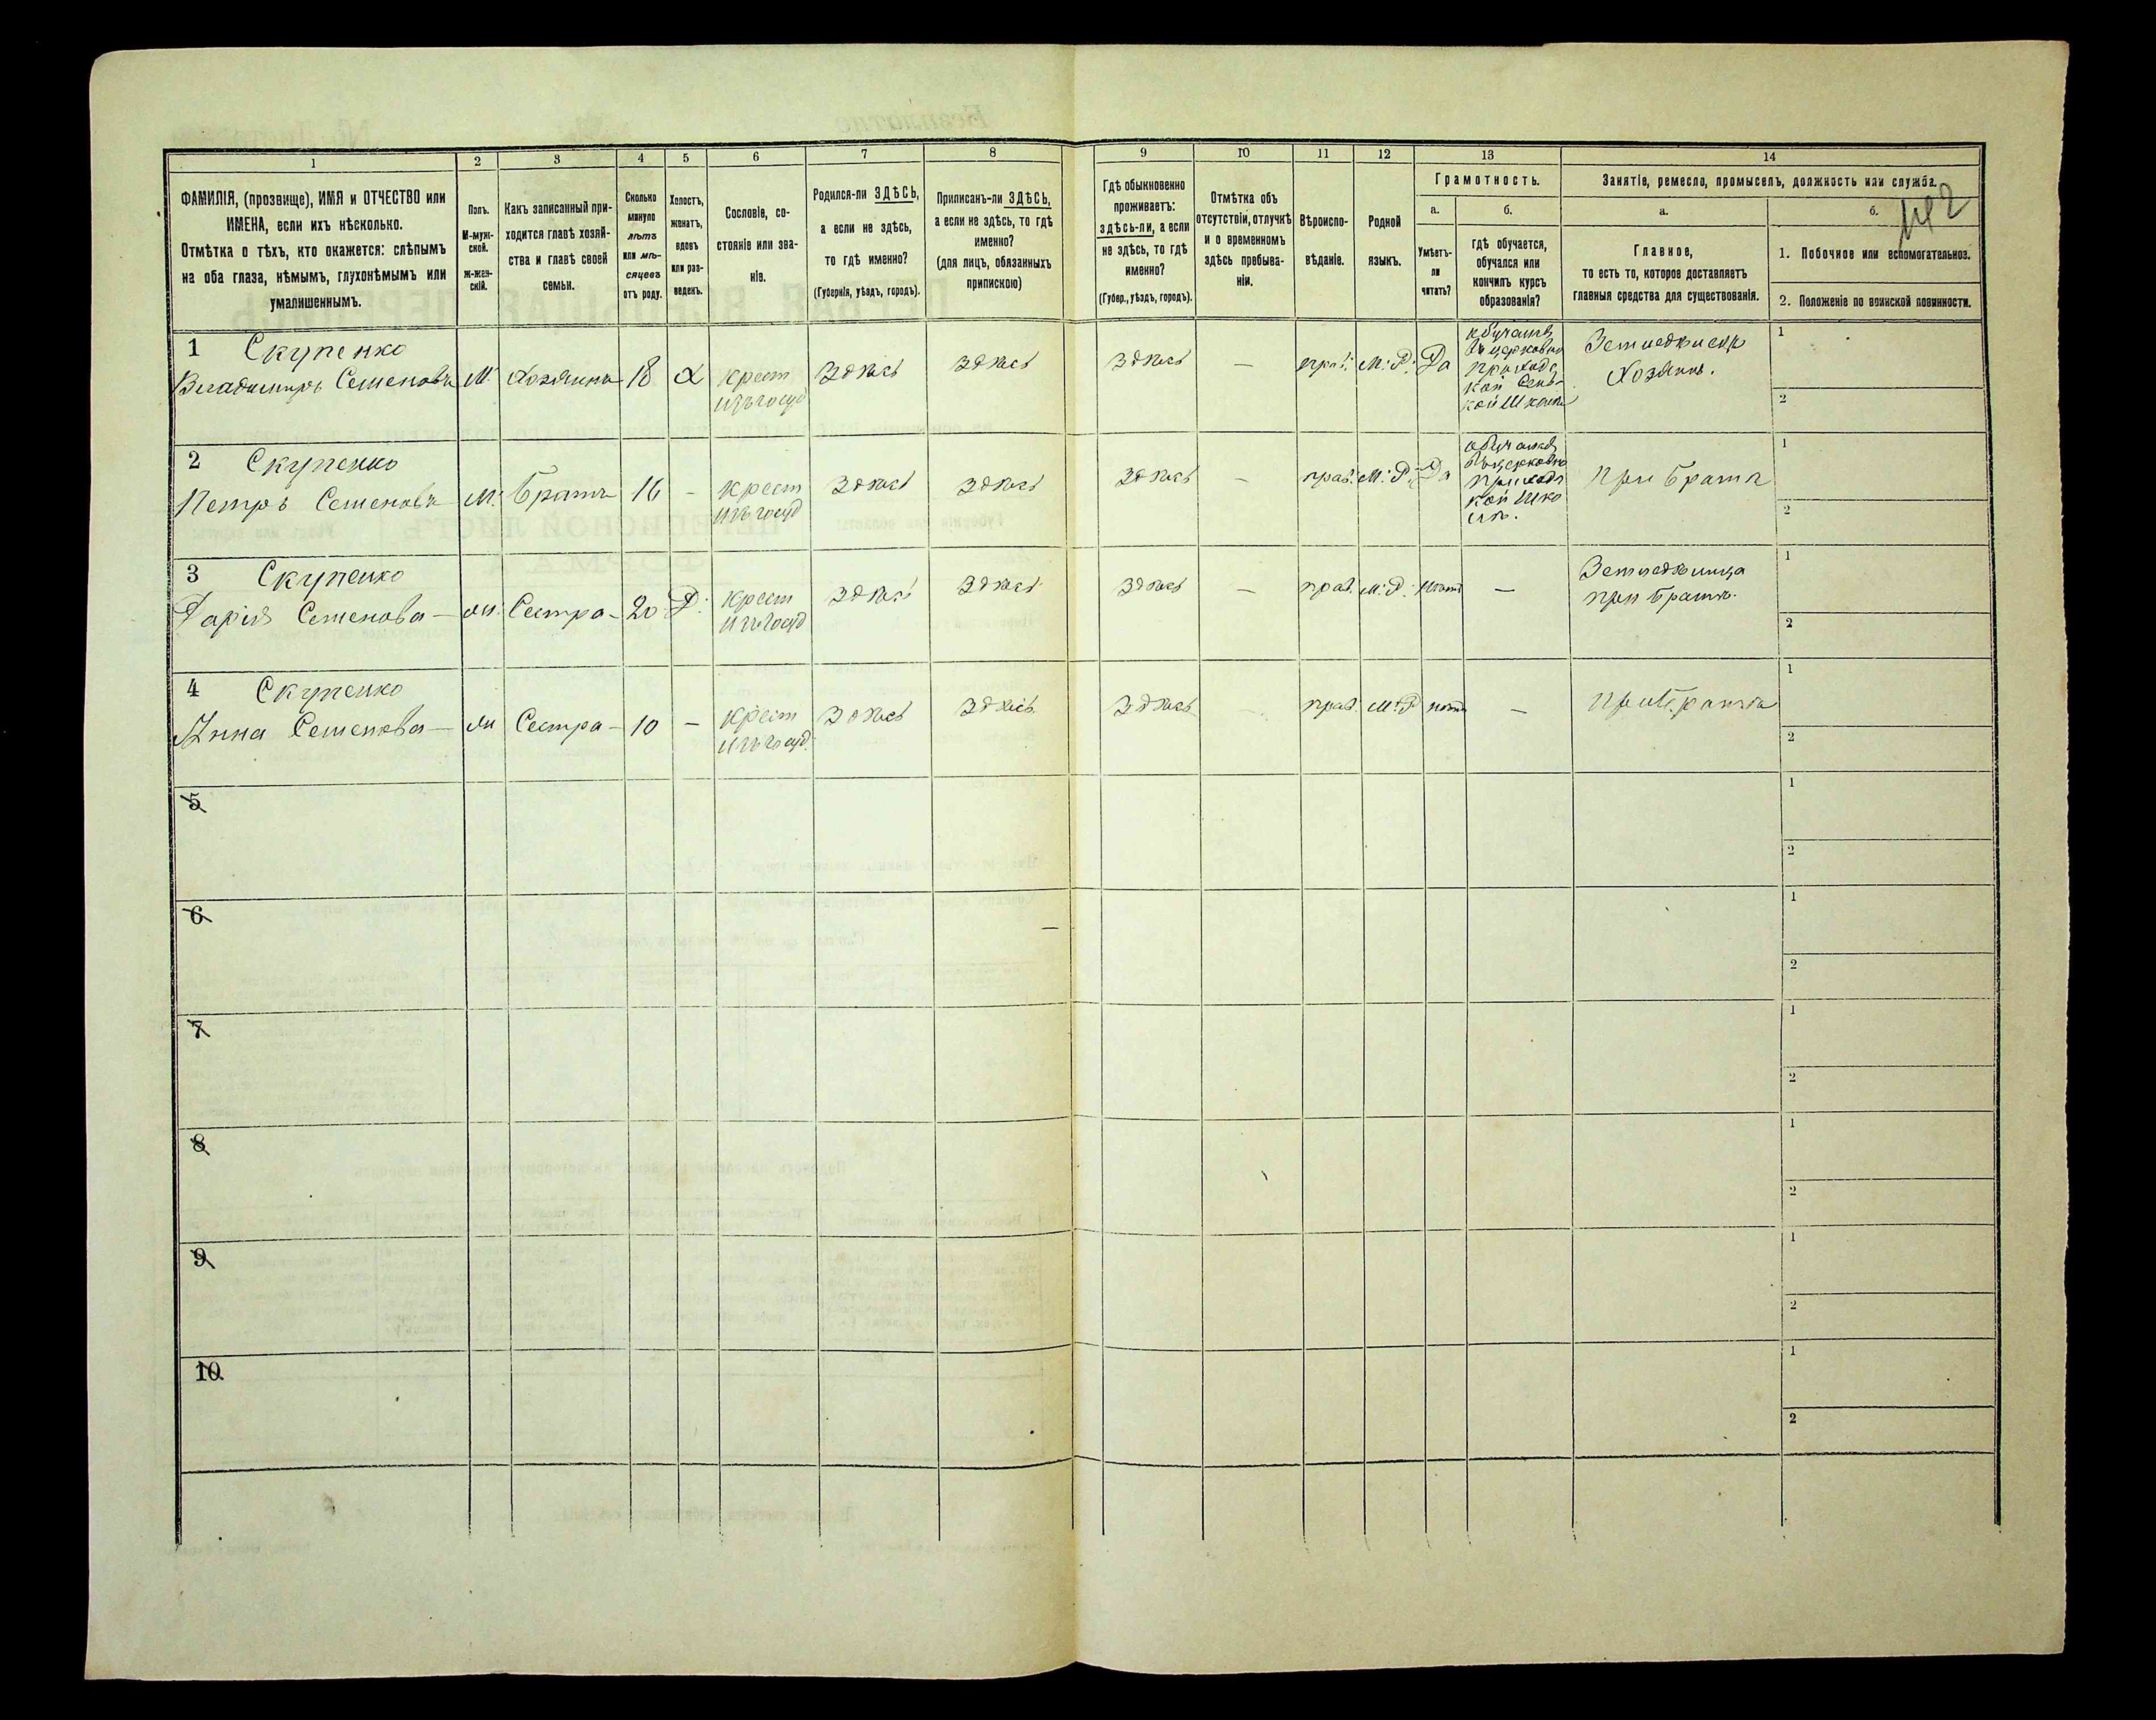 1 2 3 4 5 6 7 8 9 10 11 12 13 14
ФАМИЛІЯ, (прозвище), ИМЯ и ОТЧЕСТВО или
ИМЕНА, если ихъ нѣсколько.
Отмѣтка о тѣхъ, кто окажется: слѣпымъ
на оба глаза, нѣмымъ, глухонѣмымъ или
умалишеннымъ.
Полъ.
М-муж-
ской.
ж-жен-
скій.
Какъ записанный при-
ходится главѣ хозяй-
ства и главѣ своей
семьи.
Сколько
минуло
лѣтъ
или мѣ-
сяцевъ
отъ роду.
Холостъ,
женатъ,
вдовъ
или раз-
веденъ.
Сословіе, со-
стояніе или зва-
ніе.
Родился-ли ЗДѢСЬ,
а если не здѣсь,
то гдѣ именно?
(Губернія, уѣздъ, городъ).
Приписанъ-ли ЗДѢСЬ,
а если не здѣсь, то гдѣ
именно?
(для лицъ, обязанныхъ
припискою)
Гдѣ обыкновенно
проживаетъ:
здѣсь-ли, а если
не здѣсь, то гдѣ
именно?
(Губер., уѣздъ, городъ).
Отмѣтка объ
отсутствіи, отлучкѣ
и о временномъ
здѣсь пребыва-
ніи.
Вѣроиспо-
вѣданіе.
Родной
языкъ.
Грамотность.
а.
Умѣетъ-
ли
читать?
б.
гдѣ обучается,
обучался или
кончилъ курсъ
образованія?
Занятіе, ремесло, промыселъ, должность или служба.
а.
Главное,
то есть то, которое доставляетъ
главныя средства для существованія.
б.
1. Побочное или вспомогательное.
2. Положеніе по воинской повинности.
1 Скупенко
Владимиръ Семеновъ М. Хозяинъ 18 Х крест
изъ госуд
Здѣсь Здѣсь Здѣсь — прав. М. Р. Да
обучался
въ церковно
приход
кой Сель-
кой Школѣ
Земледѣлецъ
Хозяинъ.
1
2
2 Скупенко
Петръ Семеновъ М. Братъ 16 - крест
изъ госуд
Здѣсь Здѣсь Здѣсь — прав. М. Р. Да
обучался
въ церковно
приход
кой Шко
лѣ.
При братѣ
1
2
3 Скупенко
Дарія Семенова — ж. Сестра - 20 Д. крест
изъ госуд
Здѣсь Здѣсь Здѣсь — прав. М. Р. нѣтъ —
Земледѣлица
при братѣ.
1
2
4 Скупенко
Анна Семенова — ж Сестра - 10 — крест
изъ госуд.
Здѣсь Здѣсь Здѣсь прав. М. Р нѣтъ — При братѣ
1
2
5
1
2
6
1
2
7
1
2
8
1
2
9
1
2
10
1
2